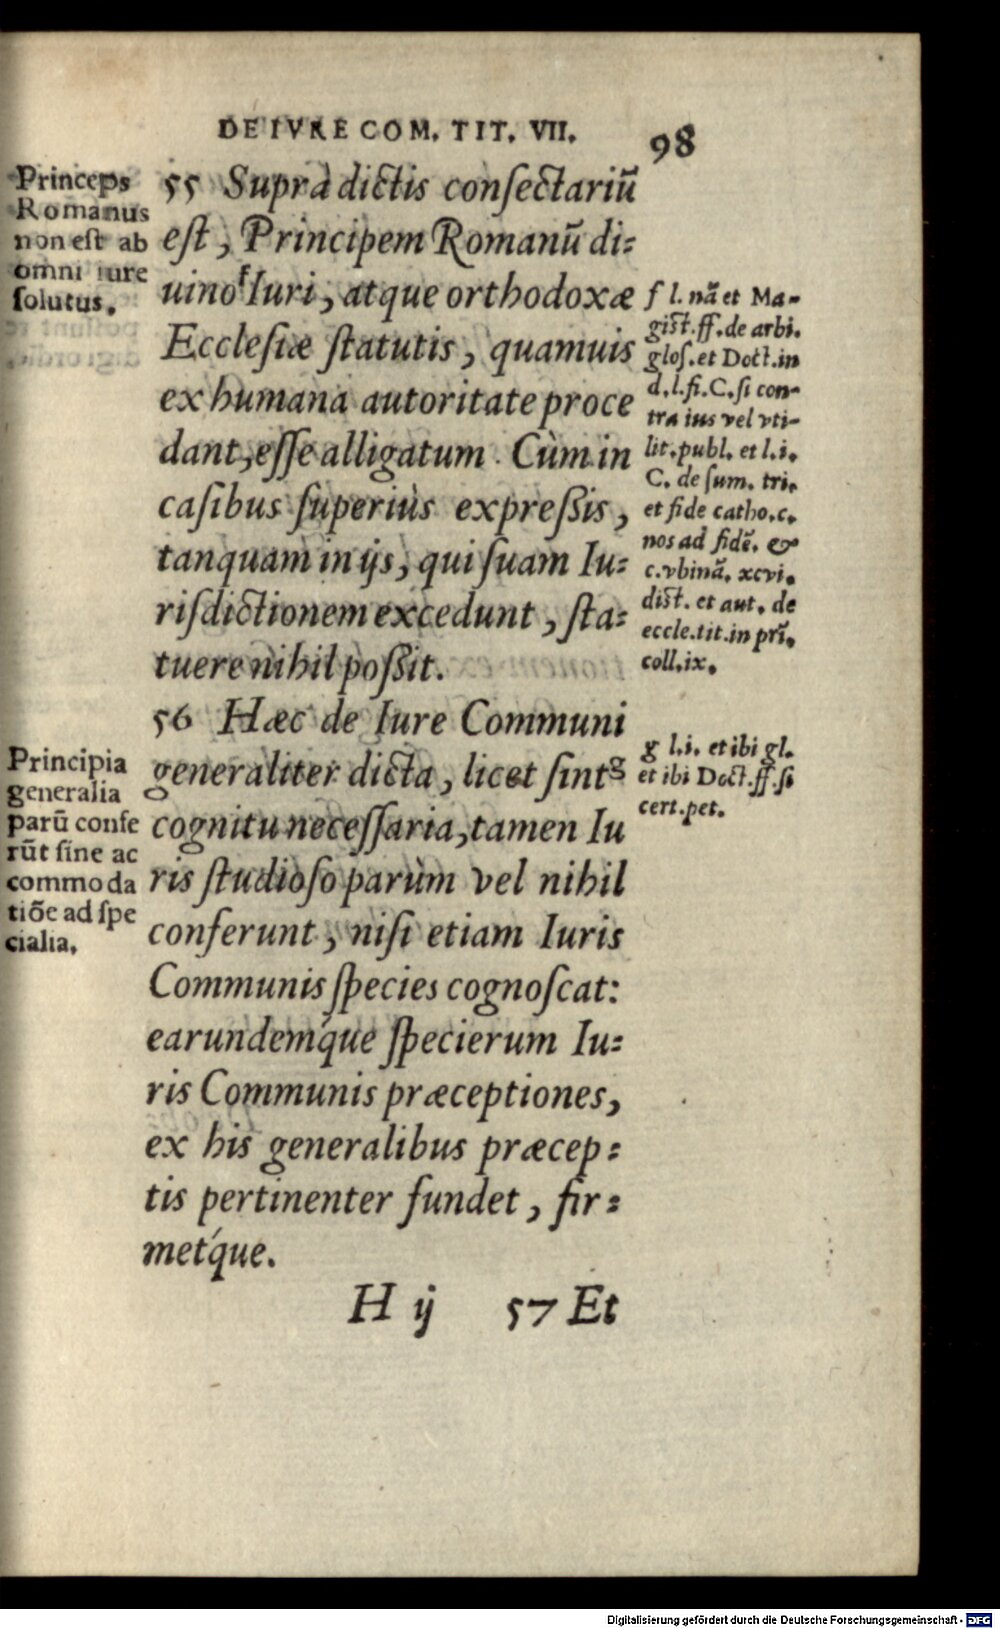 DE IVRE COM. TIT. VII.
98
Princeps
Romanus
non est ab
omni iure
solutus.
55 Supradictis consectariũ
est, Principem Romanũ di:
uino f Iuri, atque orthodoxæ
Ecclesiæ statutis, quamuis
ex humana autoritate proce
dant, esse alligatum. Cùm in
casibus superiùs expreßis,
tanquam in ijs, qui suam Iu:
risdictionem excedunt, sta:
tuere nihil poßit.
f l. nã et Ma-
gist. ff. de arbi.
glos. et Doct. in
d. l. fi. C. si con-
tra ius vel vti-
lit. publ. et l. i.
C. de sum. tri.
et fide catho. c.
nos ad fidẽ. &
c. vbinã. xcvi.
dist. et aut. de
eccle. tit. in prĩ.
coll. ix.
56 Hæc de Iure Communi
generaliter dicta, licet sint g
cognitu necessaria, tamen Iu
ris studioso parùm vel nihil
conferunt, nisi etiam Iuris
Communis species cognoscat:
earundemq́ue specierum Iu:
ris Communis præceptiones,
ex his generalibus præcep:
tis pertinenter fundet, fir:
metq́ue.
Principia
generalia
parũ confe
rũt sine ac
commoda
tiõe ad spe
cialia.
g l. i. et ibi gl.
et ibi Doct. ff. si
cert. pet.
H ij 57 Et
Digitalisierung gefördert durch die Deutsche Forschungsgemeinschaft - DFG